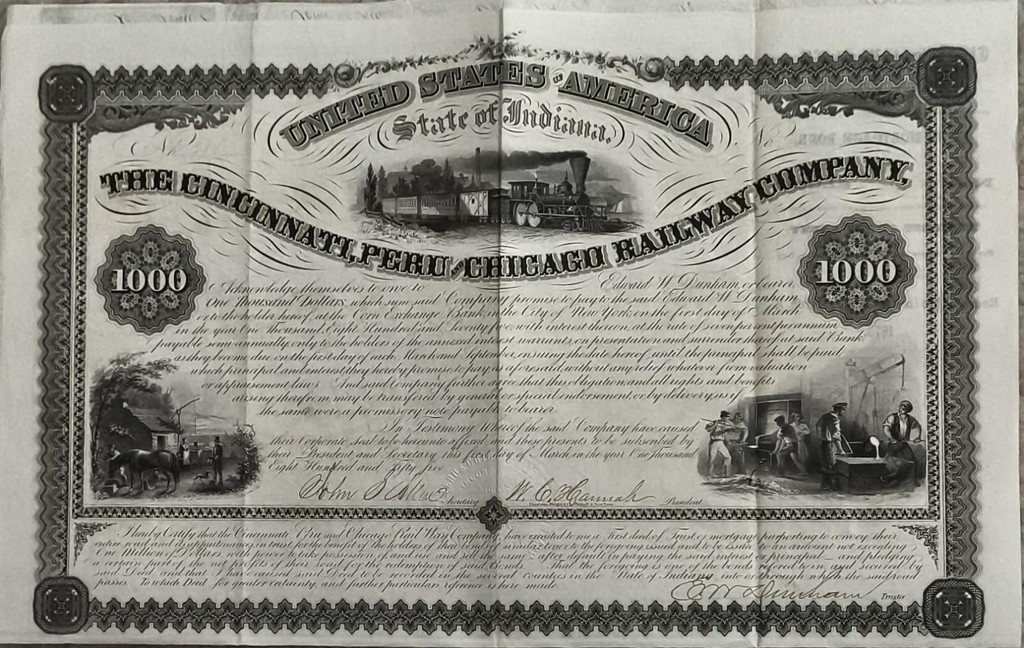 UNITED STATES OF AMERICA
State of Indiana.
No
No
THE CINCINNATI, PERU AND CHICAGO RAILWAY COMPANY,
1000
1000
Acknowledge themselves to owe to Edward W. Dunham or bearer
One Thousand Dollars, which sum said Company promise to pay to the said Edward W. Dunham
or to the holder hereof, at the Corn Exchange Bank, in the City of New York on the first day of March
in the year One Thousand Eight Hundred and Seventy five with interest thereon, at the rate of seven per cent per annum
payable semi annually, only to the holders of the annexed interest warrants, on presentation and surrender thereof at said Bank
as they become due on the first day of each March and September, ensuing the date hereof, until the principal shall be paid
which principal and interest they hereby promise to pay as aforesaid, without any relief whatever from valuation
or appraisement laws. And said Company further agree that this obligation and all rights and benefits
arising therefrom may be transferred by general or special endorsement, or by delivery, as if
the same were a promissory note payable to bearer.
In Testimony Whereof the said Company have caused
their Corporate seal to be hereunto affixed and these presents to be subscribed by
their President and Secretary this first day of March in the year One Thousand
Eight Hundred and fifty five
John Secretary W. C. Hannah President
I hereby Certify that the Cincinnati Peru and Chicago Rail Way Company have executed to me a First deed of Trust or mortgage purporting to convey their
entire road &
One Million of Dollars with power to take possession of and use and sell the
a certain part of the net profits of their road for the redemption of said Bonds. That the foregoing is one of the bonds referred to in and secured by
said Deed and that I have caused said Deed to be recorded in the several Counties in the State of Indiana into or through which the said road
passes. To which Deed for greater certainty and further particulars reference is here made.
E W Dunham Trustee